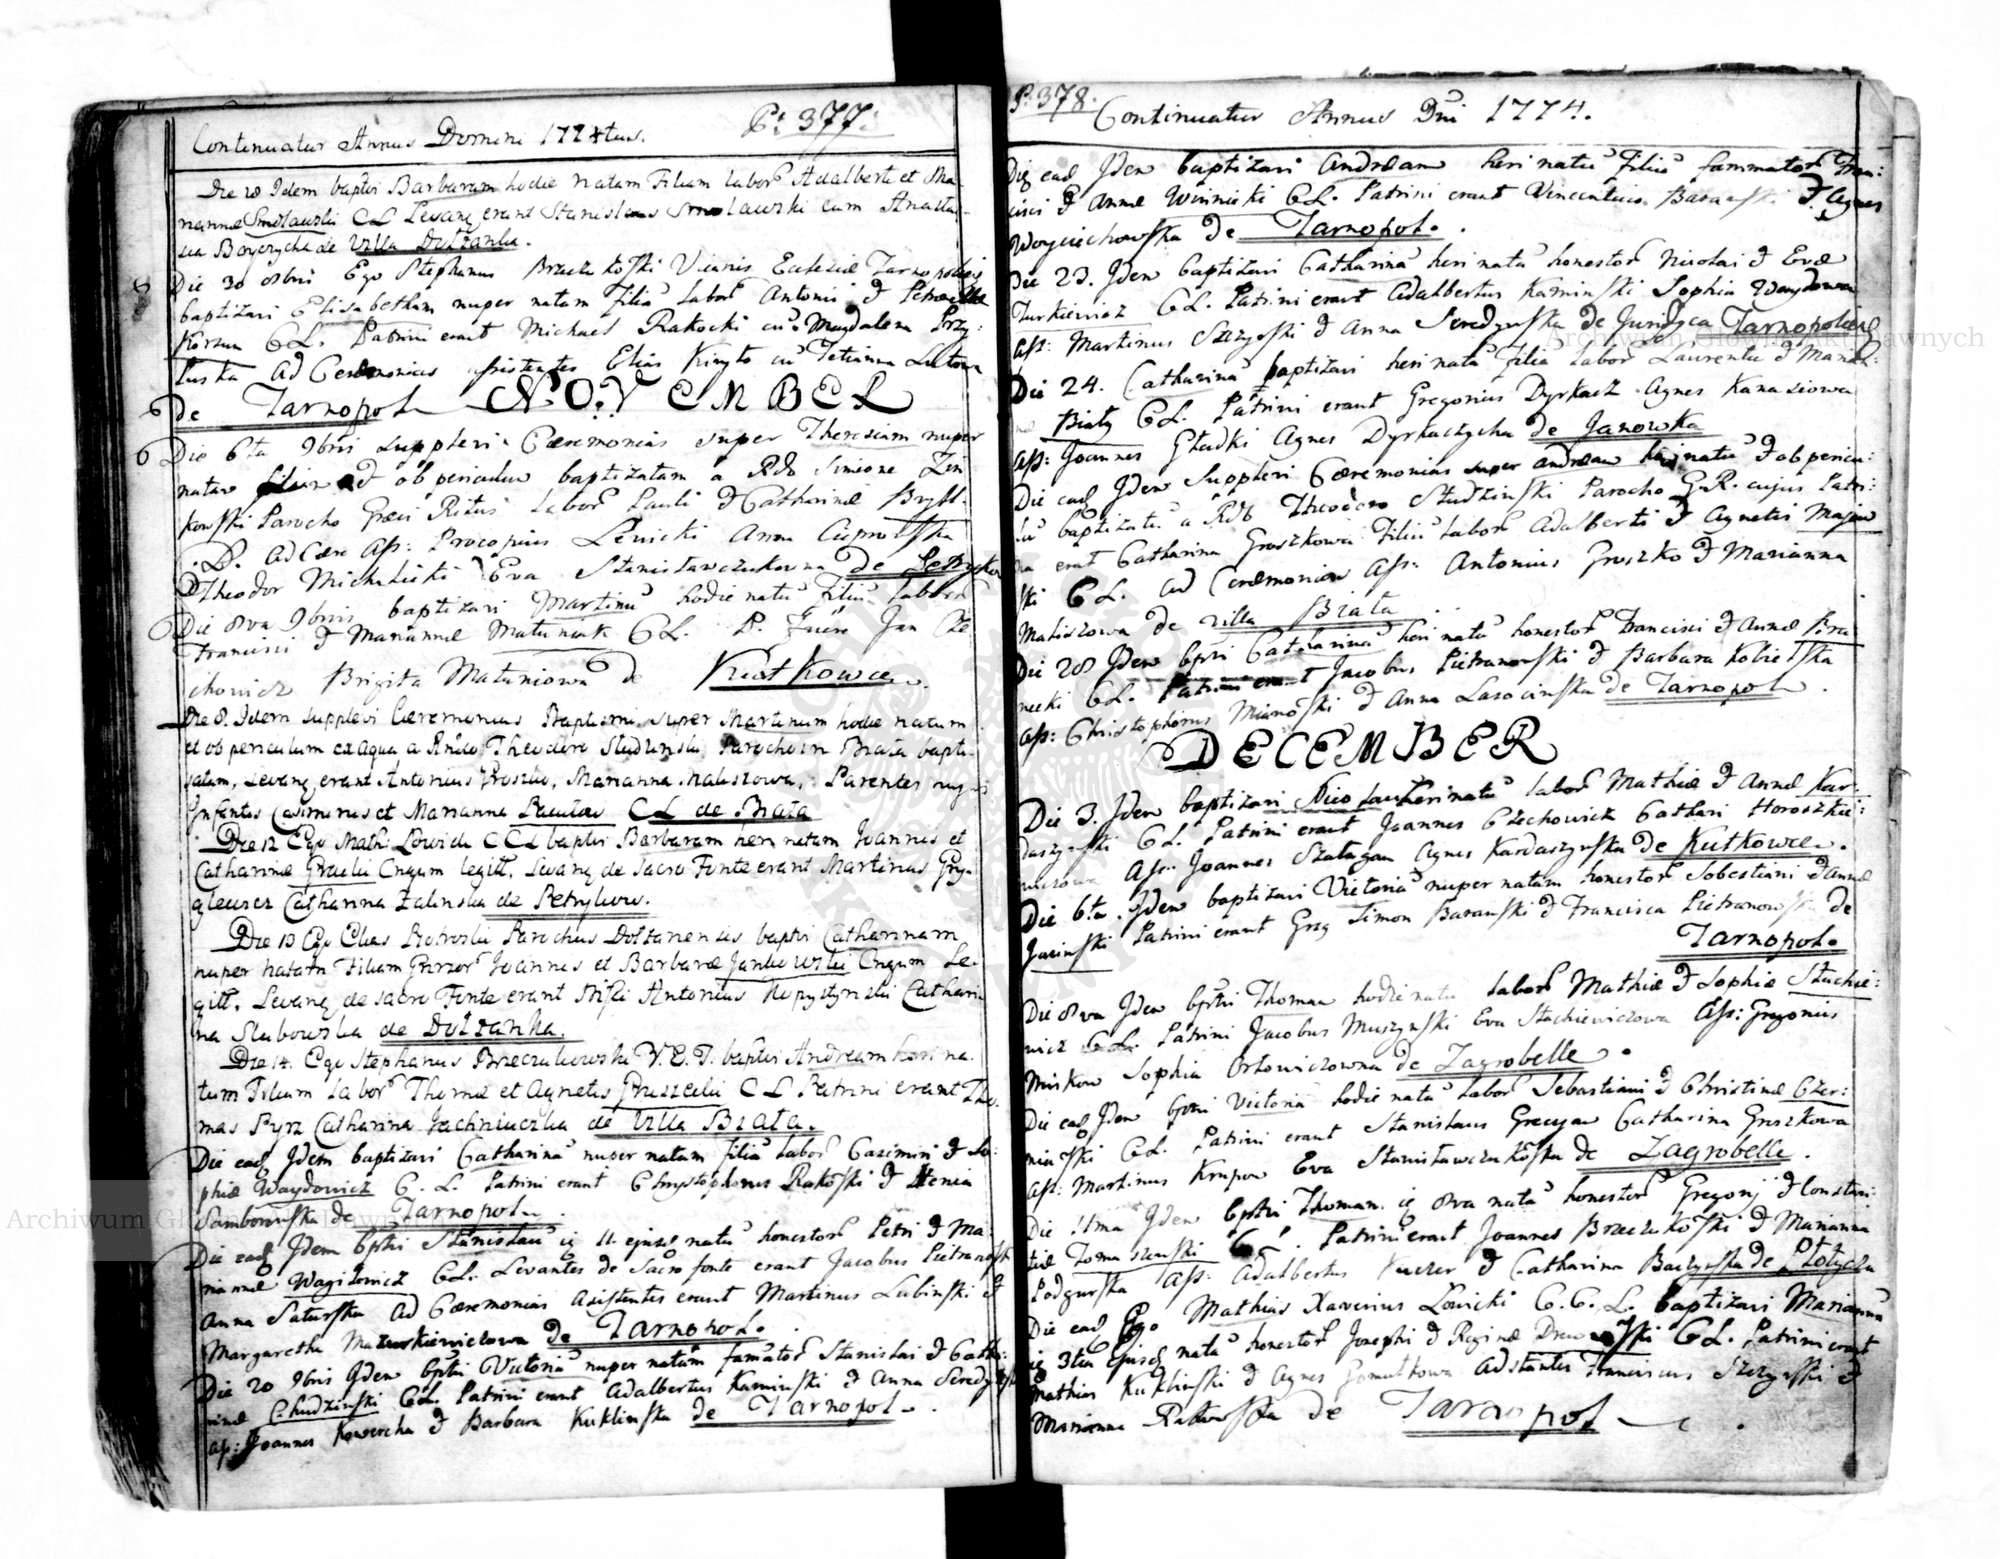 P: 377.
Continuatur Annus Domini 1774tus.
Die 28 Idem baptisi Barbaram hodie natam Filiam labor Adalberti et Ma-
riannæ Smolawski CL Levang erant Stanislaus Smolawski cum Anasta-
sia Boycrycha de Villa Dolzanka.
Die 30 8bris Ego Stephanus Brzezukoski Vicarius Ecclesiæ Tarnopolensis
baptizavi Elisabetham nuper natam filia labor Antonii & Petronellæ
Korzun CL. Patrini erant Michael Rakocki cu Magdalena Przy:
luska Ad Ceremonias assistentes Elias Kinyto cu Tetianna
de Tarnopol
NOVEMBER
Die 6ta 9bris supplevi Cæremonias super Theresiam nuper
natam filiam & ob periculum baptizatam a Rdo Simeone
kowski Parocho Græci Ritus labor Pauli & Catharinæ
ad Cære Ass: Procopius Lewicki Anna
Theodor Michalicki Eva Stanisławczukowna de Petryków
Die 8va 9bris baptizavi Martinu hodie natu Filiu labor
Francisci & Mariannæ Matuniak CL. P. Fuere Jan
chowicz Brigita Matuniowa de Kutkowce.
Die 8. Idem supplevi Cæremonias Baptismi super Martinum hodie natum
et ob periculum ex aqua a Rndo Theodoro Studzinski Parocho in Biała bapti-
satum, Levang erant Antonius Groszko, Marianna Maliszowa, Parentes
Infantis Casimirus et Marianna CL de Biała
Die 12 Ego Math: Łowicki CCL baptisi Barbaram heri natam Joannis et
Catharinæ Cngum legitt. Levang de Sacro Fonte erant Martinus Gry-
glewicz Catharina Zalinska de Petrykow.
Die 13 Ego Elias Pietroski Parochus Dolzanensis baptisi Catharinam
nuper natam Filiam Joannis et Barbaræ Jankowski Cngum Le-
gitt. Levang de sacro Fonte erant Antonius Kopystynski Cathari-
na Slabowska de Dolzanka.
Die 14. Ego Stephanus Brzezukowski V.E.T. baptisi Andream heri na-
tum Filium labor Thomæ et Agnetis CL Patrini erant Tho-
mas Pyrz Catharina Jachniuczka de Villa Biała.
Die ead Idem baptizavi Catharina nuper natam filia labor Casimiri & So-
phiæ Waydowicz C. L. Patrini erant Chrystophorus Rakoski & Xtenia
Sambowska de Tarnopol.
Die ead Idem bpsti Stanislau ig 11 ejusd natu honestor Petri & Ma-
riannæ Wagilewicz CL. Levantes de Sacro fonte erant Jacobus Pietranoski
Anna Saturska Ad Cæremonias Assistentes erant Martinus Lubinski &
Margaretha Mazurkiewiczowa de Tarnopol.
Die 20 9bris Idem bpsti Victoria nuper natam famator Stanislai & Catha:
rinæ Chudzinski CL. Patrini erant Adalbertus Kaminski & Anna
ass: Joannes Kowercha & Barbara Kuklinska de Tarnopol.
P: 378.
Continuatur Annus Dni 1774.
Die ead Idem baptizavi Andream heri natu Filiu fammator Fran:
cisci & Annæ Winnicki CL. Patrini erant Vincentius Baranski & Agnes
Woyciechowska de Tarnopol.
Die 23. Idem baptizavi Catharina heri natu honestor Nicolai & Evæ
Turkiewicz CL. Patrini erant Adalbertus Kaminski Sophia Waydowa
ass: Martinus Szczyski & Anna Seredynska de Juridyca Tarnopolien
Die 24. Catharina baptizavi heri natu filia labor Laurentii & Marian:
næ Biały CL. Patrini erant Gregorius Dyrkacz Agnes Kanasiowa
ass: Joannes Gładki Agnes Dyrkaczycha de Janowka
Die ead Idem supplevi Cæremonias super Andream heri natu & ob pericu:
lu baptizatu a Rdo Theodoro Studzinski Parocho G.R. cujus Patri:
na erat Catharina Groszkowa Filiu labor Adalberti & Agnetis Majew
ski CL. ad Ceremonias Ass: Antonius Groszko & Marianna
Maliszowa de villa Biała
Die 28 Idem bpsti Catharina heri natu honestor Francisci & Annæ
necki CL. Patrini erant Jacobus Pietranowski & Barbara Kobielska
ass: Christophorus Mianoski & Anna Lasocinska de Tarnopol.
DECEMBER
Die 3. Idem baptizavi Nicolau heri natu labor Mathiæ & Annæ Kar-
daszynski CL. Patrini erant Joannes Czechowicz Cathari Horoszkie:
wiczowa Ass: Joannes Szatagan Agnes Kardaszynska de Kutkowce.
Die 6ta. Idem baptizavi Victoria nuper natam honestor Sebastiani & Annæ
Jasinski Patrini erant Greg Simon Baranski & Francisca Pietranowska de
Tarnopol.
Die 8va Idem bpsti Thomam hodie natu labor Mathiæ & Sophiæ Stachie:
wicz CL. Patrini Jacobus Muszynski Eva Stachiewiczowa Ass: Gregorius
Miskow Sophia Orlowiczowna de Zagrobelle.
Die ead Idem bpsti Victoria hodie natu labor Sebastiani & Christinæ Czer:
niaski CL. Patrini erant Stanislaus Grecyan Catharina Groszkowa
ass: Martinus Krupow Eva Stanisławczukoska de Zagrobelle.
Die 11ma Idem bpsti Thoman. ig 8va natu honestor Gregorij & Constan:
tiæ Tomaszewski C. Patrini erant Joannes Brzezukoski & Marianna
Podgurska ass: Adalbertus Kuczer & Catharina Baczynska de Płotycza
Die ead Ego Mathias Xaverius Łowicki C.C.L. baptizavi Marianna
ig 3tia ejusd natu honestor Josephi & Reginæ CL. Patrini erant
Mathias Kuklinski & Agnes Gomulkowa Adstantes Franciscus Szczynski &
Marianna Rakowska de Tarnopol
Archiwum Główne Akt Dawnych